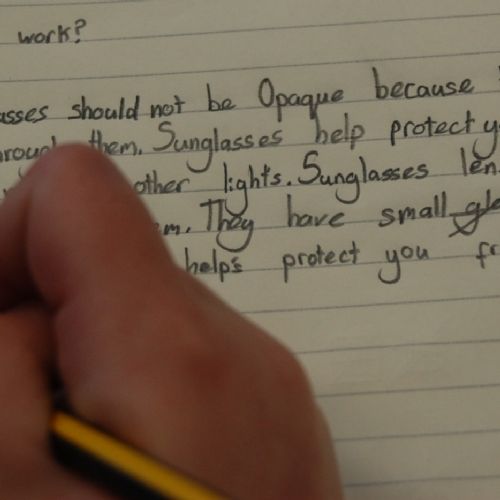 work?
asses should not be Opaque because
rough them. Sunglasses help protect y
other lights. Sunglasses len
em. They have small gla
helps protect you fr